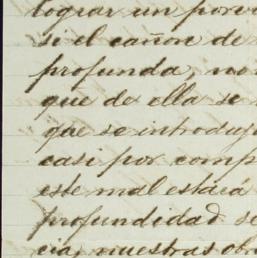 lograr un porv
si el cañon de
profunda, no
que de ella se
que se introduj
casi por comp
este mal estará
profundidad se
cia, nuestras obr